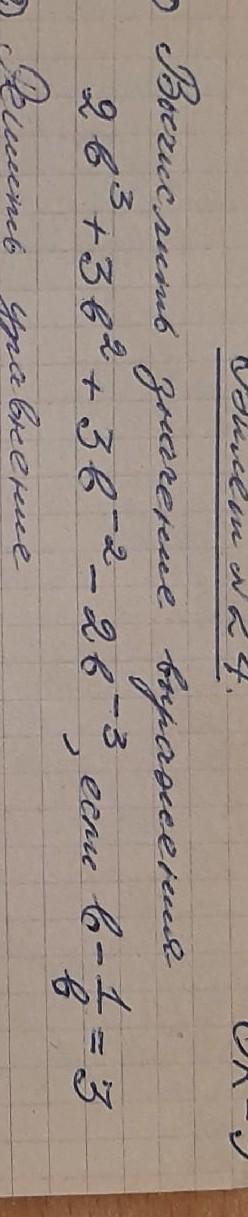 № 24.
) Вычислить значение выражения
2b³ + 3b² + 3b⁻² - 2b⁻³, если b - 1/b = 3
2) Решить уравнение